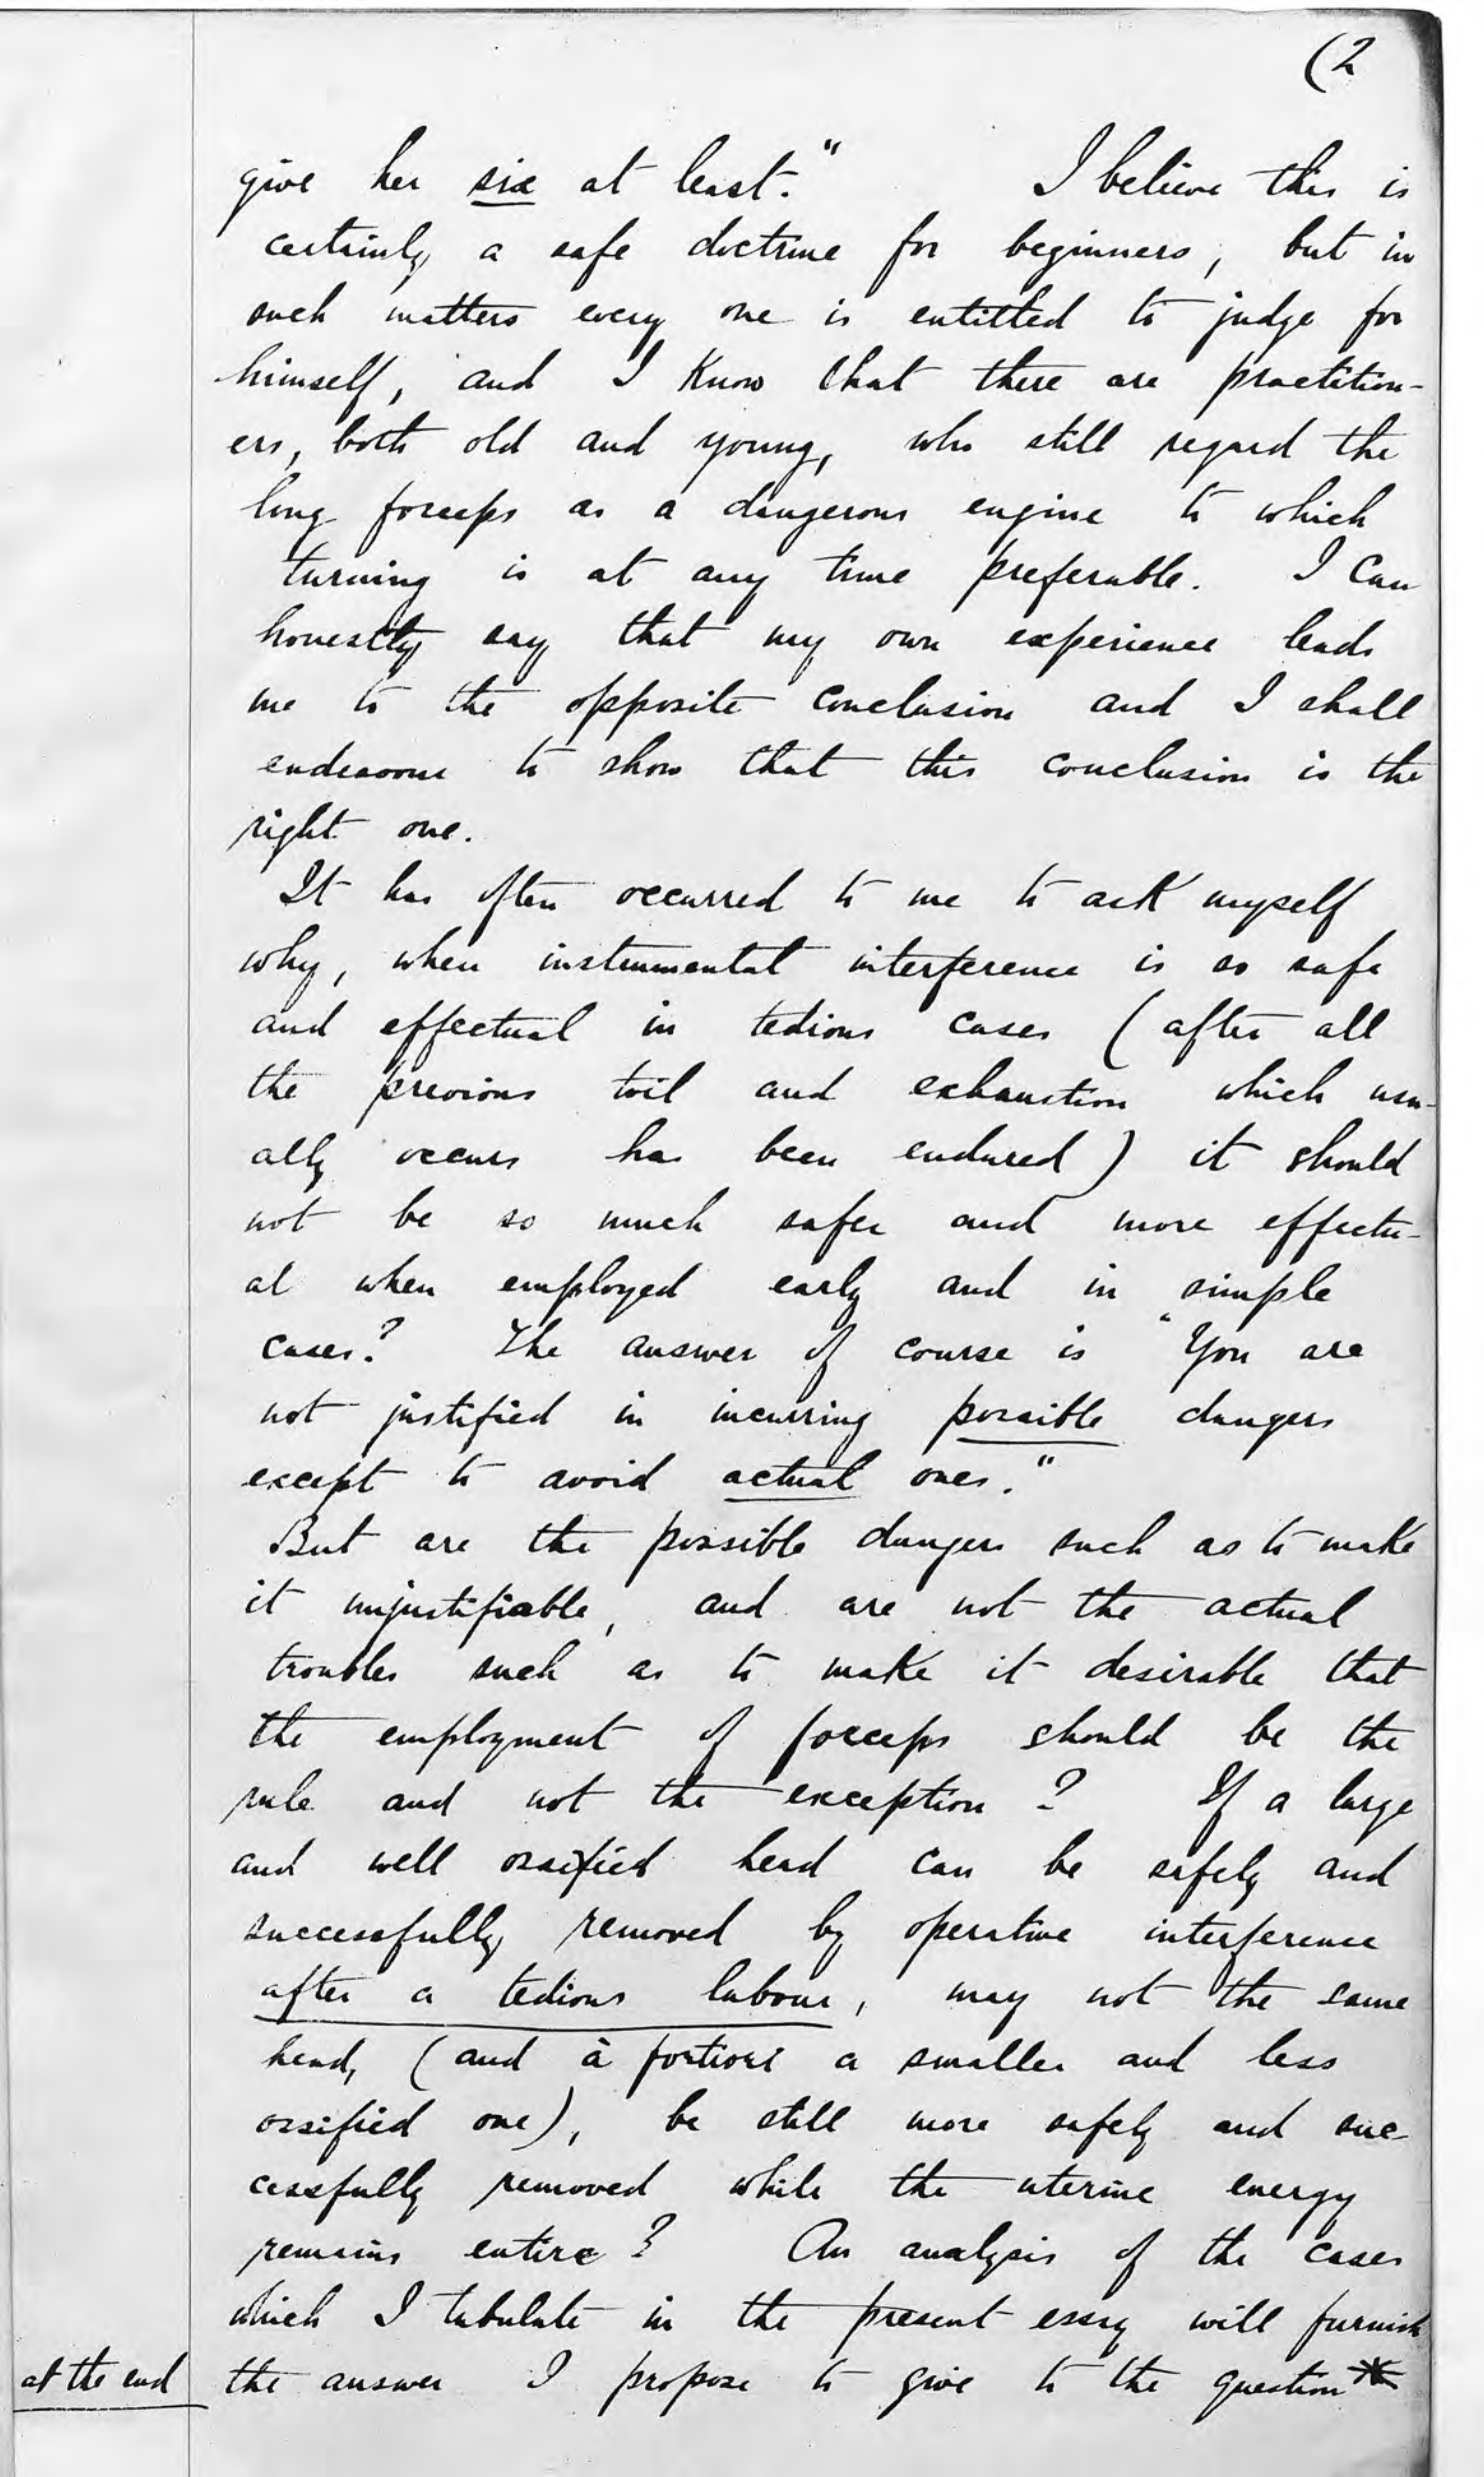 (2
give her six at least."   I believe this is
certainly a safe doctrine for beginners, but in
such matters every one is entitled to judge for
himself, and I know that there are practition-
ers, both old and young, who still regard the
long forceps as a dangerous engine to which
turning is at any time preferable. I can
honestly say that my own experience leads
me to the opposite conclusion and I shall
endeavour to show that this conclusion is the
right one.
It has often occurred to me to ask myself
why, when instrumental interference is so safe
and effectual in tedious cases (after all
the previous toil and exhaustion which usu-
ally occurs has been endured) it should
not be so much safer and more effectu-
al when employed early and in simple
cases? The answer of course is "You are
not justified in incurring possible dangers
except to avoid actual ones."
But are the possible dangers such as to make
it unjustifiable, and are not the actual
troubles such as to make it desirable that
the employment of forceps should be the
rule and not the exception? If a large
and well ossified head can be safely and
successfully removed by operative interference
after a tedious labour, may not the same
head, (and à fortiori a smaller and less
ossified one), be still more safely and suc-
cessfully removed while the uterine energy
remains entire? An analysis of the cases
which I tabulate in the present essay will furnish
at the end
the answer I propose to give to the question*